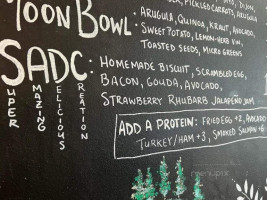 PICKLED CARROTS, ARUGULA
MOON BOWL: ARUGULA, QUINOA, KRAUT, AVOCADO,
SWEET POTATO, LEMON-HERB VIN,
TOASTED SEEDS, MICRO GREENS
SADC: HOMEMADE BISCUIT, SCRAMBLED EGG,
BACON, GOUDA, AVOCADO,
STRAWBERRY RHUBARB JALAPEÑO JAM
SUPER
AMAZING
DELICIOUS
CREATION
ADD A PROTEIN: FRIED EGG +2, AVOCADO
TURKEY/HAM +3, SMOKED SALMON +6